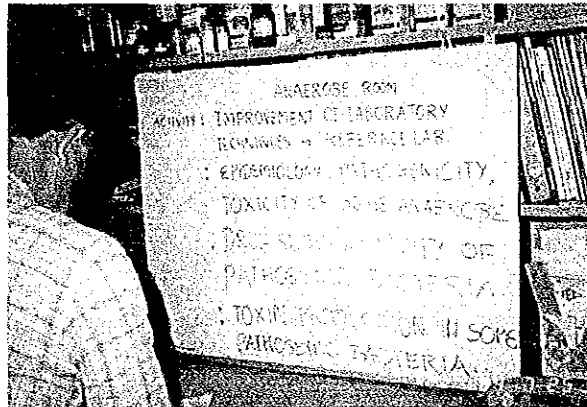 ANAEROBE ROOM
ACTIVITY: IMPROVEMENT OF LABORATORY
TECHNIQUES REFERENCE LAB.
: EPIDEMIOLOGY, PATHOGENICITY,
TOXICITY OF SOME ANAEROBE
: DRUG SUSCEPTIBILITY OF
PATHOGENIC BACTERIA
: TOXIN PRODUCTION IN SOME
PATHOGENIC BACTERIA